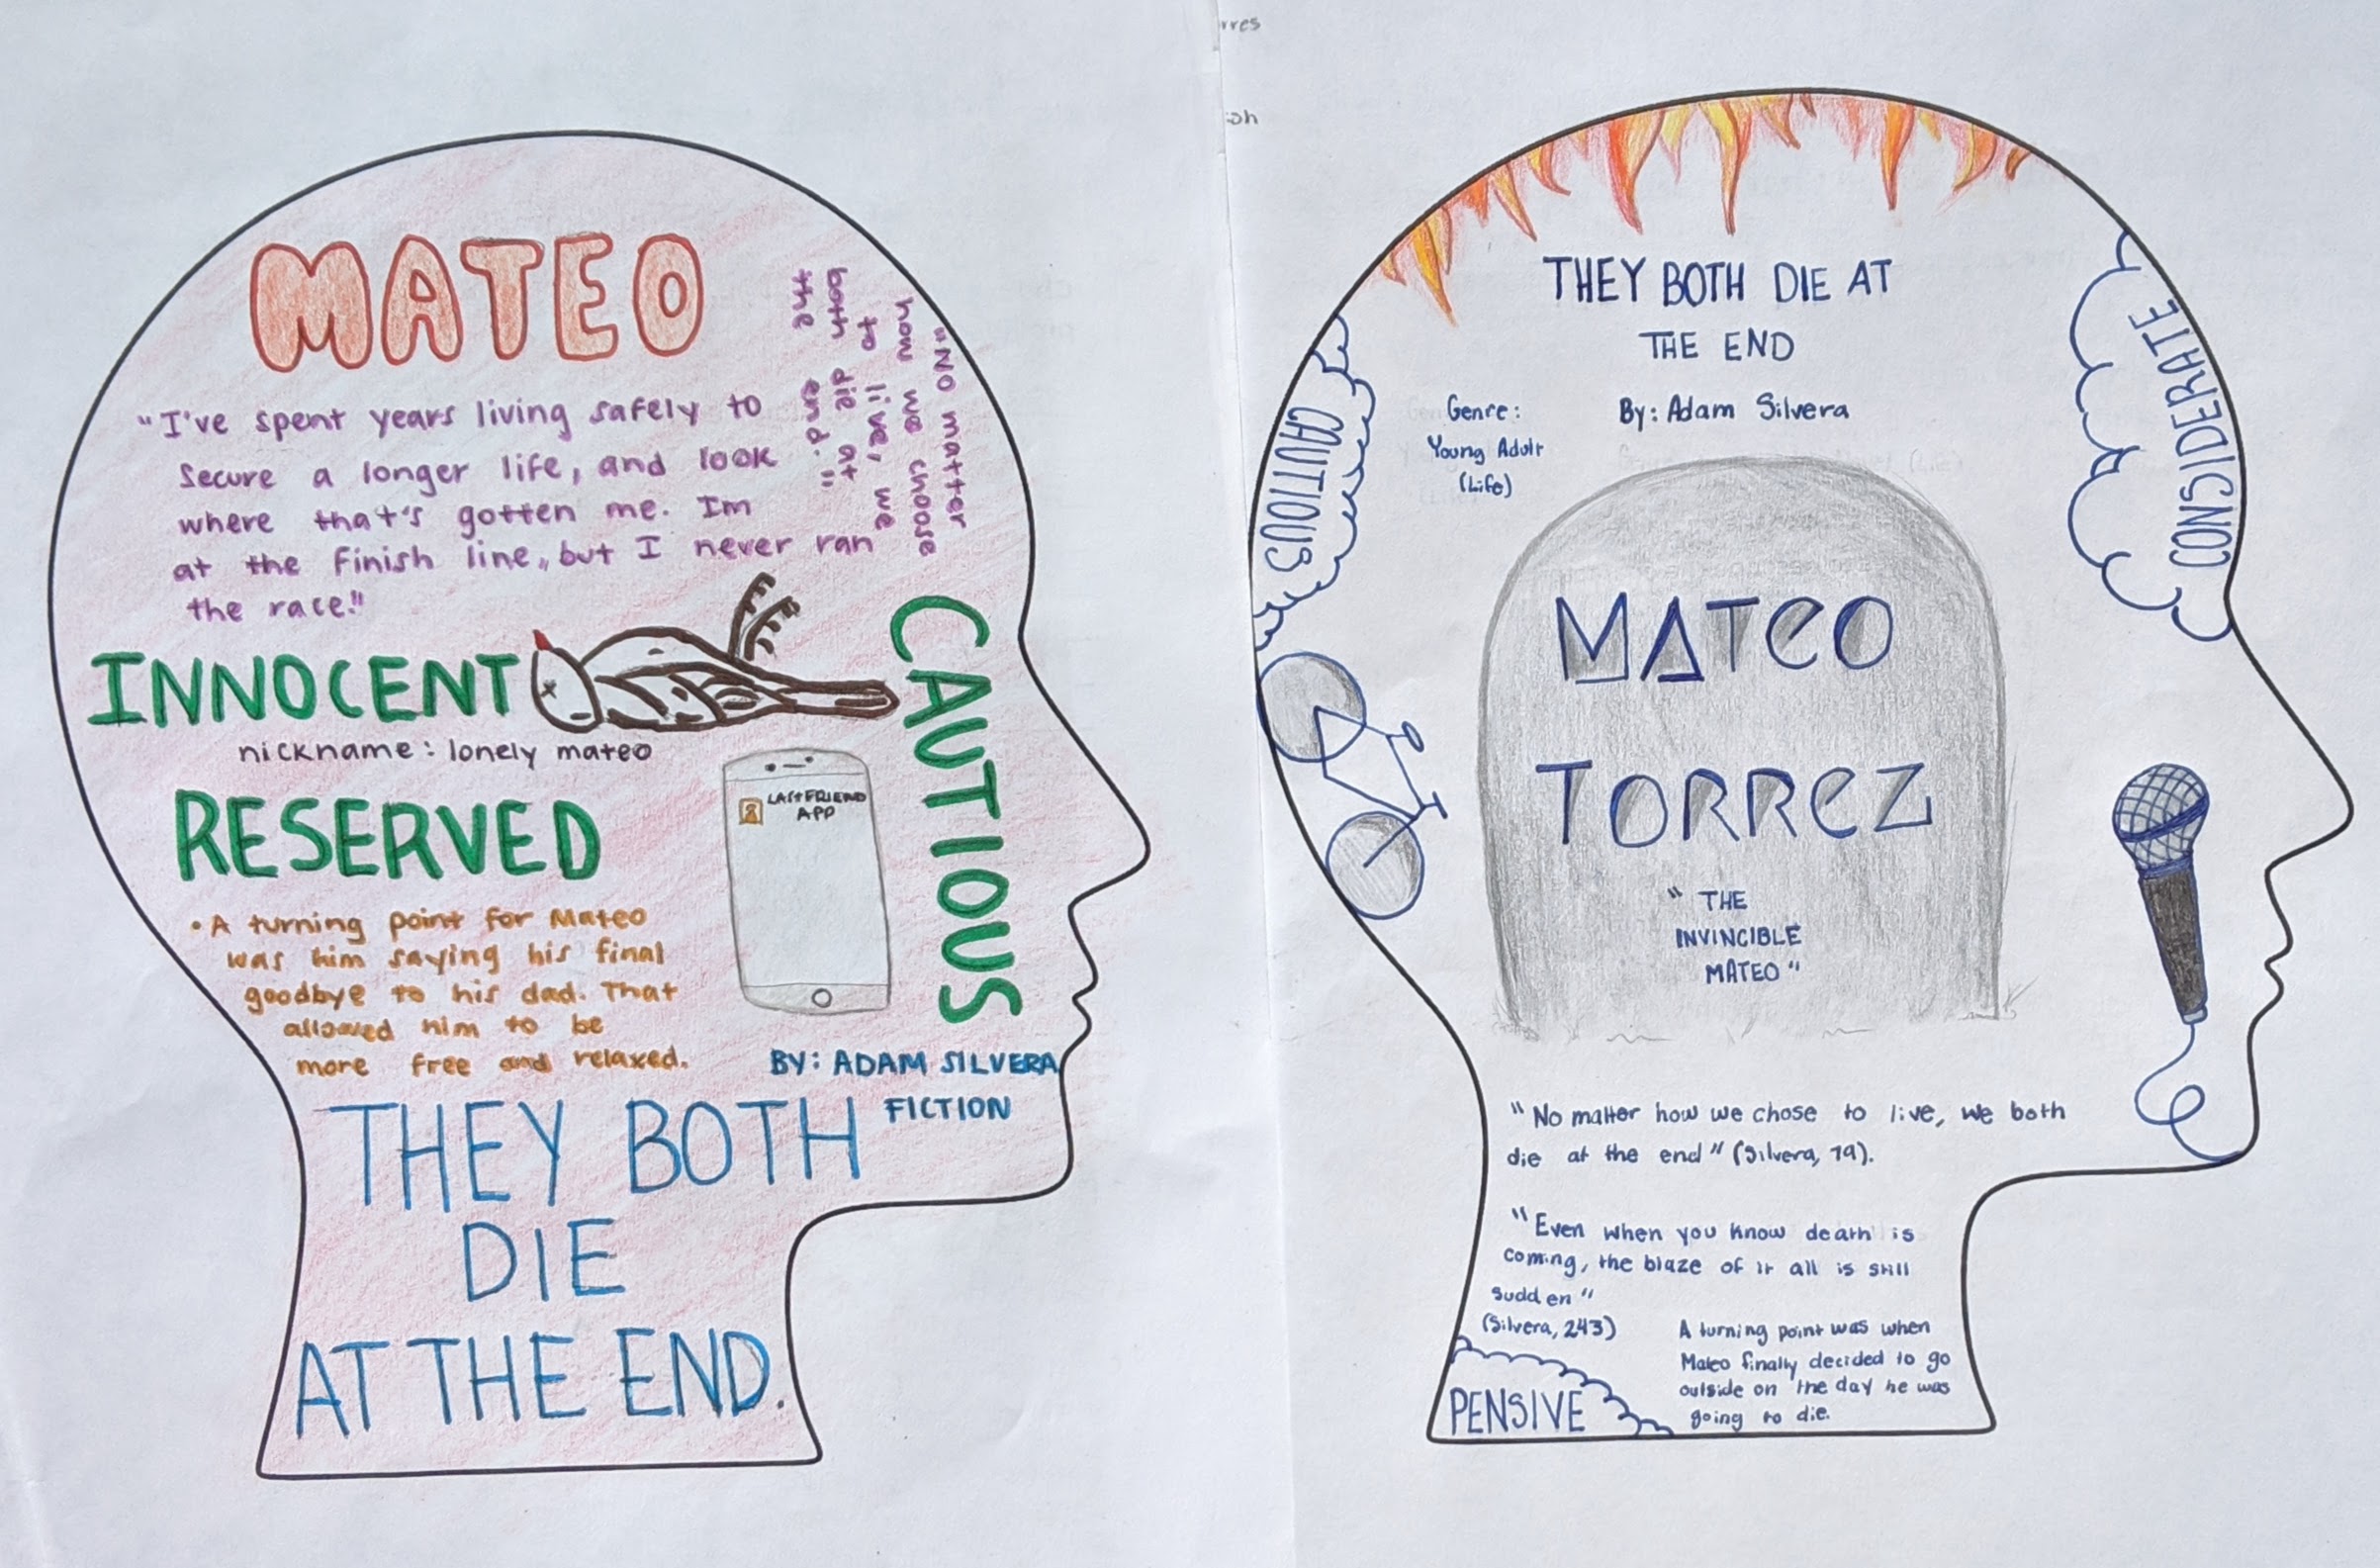 MATEO
"I've spent years living safely to
secure a longer life, and look
where that's gotten me. Im
at the finish line, but I never ran
the race."
"No matter
how we choose
to live, we
both die at
the end."
INNOCENT
nickname: lonely mateo
RESERVED
CAUTIOUS
LASTFRIEND
APP
• A turning point for Mateo
was him saying his final
goodbye to his dad. That
allowed him to be
more free and relaxed.
BY: ADAM SILVERA
FICTION
THEY BOTH
DIE
AT THE END.
rres
oh
THEY BOTH DIE AT
THE END
By: Adam Silvera
Genre:
Young Adult
(Life)
CAUTIOUS
CONSIDERATE
MATEO
TORREZ
"THE
INVINCIBLE
MATEO"
"No matter how we chose to live, we both
die at the end" (Silvera, 79).
"Even when you know death is
coming, the blaze of it all is still
sudden"
(Silvera, 243)
A turning point was when
Mateo finally decided to go
outside on the day he was
going to die.
PENSIVE